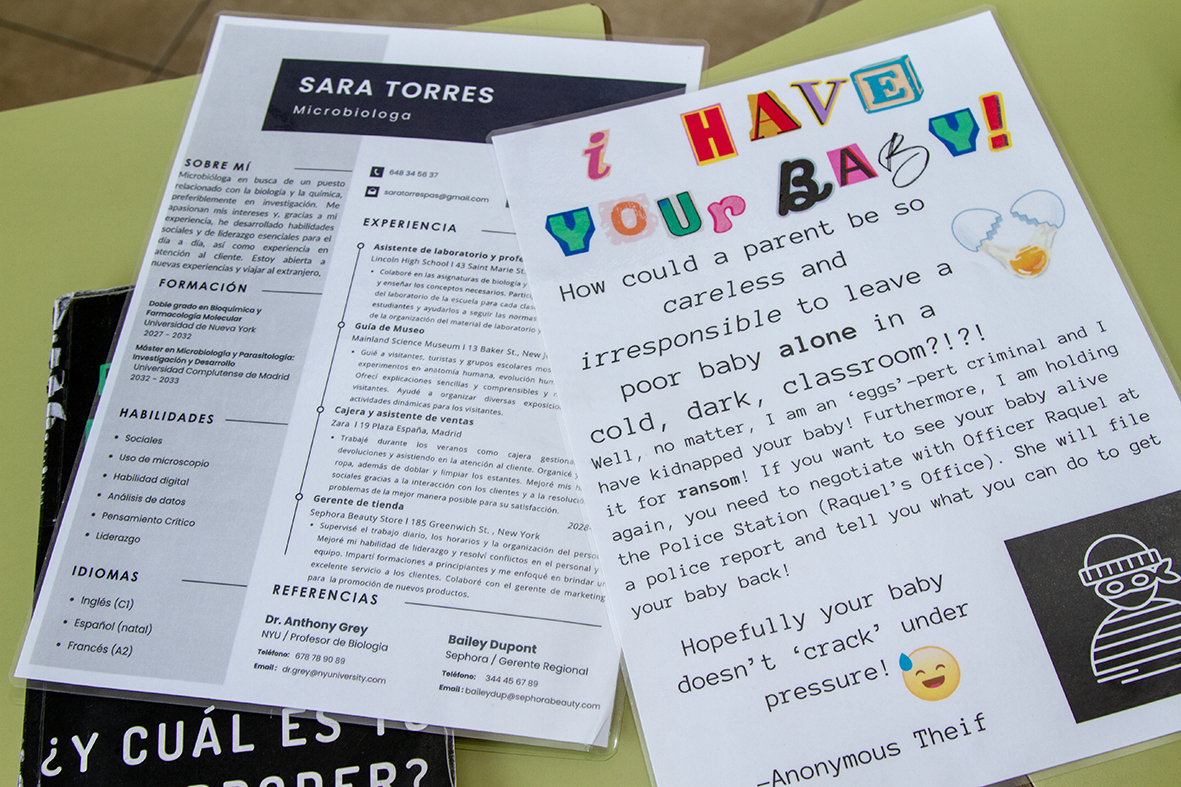 SARA TORRES
Microbiologa
SOBRE MÍ
Microbióloga en busca de un puesto
relacionado con la biología y la química,
preferiblemente en investigación. Me
apasionan mis intereses y, gracias a mi
experiencia, he desarrollado habilidades
sociales y de liderazgo esenciales para el
día a día, así como experiencia en
atención al cliente. Estoy abierta a
nuevas experiencias y viajar al extranjero,
FORMACIÓN
Doble grado en Bioquímica y
Farmacología Molecular
Universidad de Nueva York
2027 - 2032
Máster en Microbiología y Parasitología:
Investigación y Desarrollo
Universidad Complutense de Madrid
2032 - 2033
HABILIDADES
• Sociales
• Uso de microscopio
• Habilidad digital
• Análisis de datos
• Pensamiento Crítico
• Liderazgo
IDIOMAS
• Inglés (C1)
• Español (natal)
• Francés (A2)
648 34 56 37
saratorrespas@gmail.com
EXPERIENCIA
Asistente de laboratorio y profe
Lincoln High School I 43 Saint Marie St.
• Colaboré en las asignaturas de biología y
y enseñar los conceptos necesarios. Partici
del laboratorio de la escuela para cada clas
estudiantes y ayudarlos a seguir las normas
de la organización del material de laboratorio y
Guía de Museo
Mainland Science Museum I 13 Baker St., New J
• Guié a visitantes, turistas y grupos escolares mos
experimentos en anatomía humana, evolución hum
Ofrecí explicaciones sencillas y comprensibles y
visitantes. Ayudé a organizar diversas exposicio
actividades dinámicas para los visitantes.
Cajera y asistente de ventas
Zara I 19 Plaza España, Madrid
• Trabajé durante los veranos como cajera gestiona
devoluciones y asistiendo en la atención al cliente. Organicé y
ropa, además de doblar y limpiar los estantes. Mejoré mis h
sociales gracias a la interacción con los clientes y a la resolució
problemas de la mejor manera posible para su satisfacción.
Gerente de tienda
2028-
Sephora Beauty Store I 185 Greenwich St. , New York
• Supervisé el trabajo diario, los horarios y la organización del person
Mejoré mi habilidad de liderazgo y resolví conflictos en el personal y
equipo. Impartí formaciones a principiantes y me enfoqué en brindar un
excelente servicio a los clientes. Colaboré con el gerente de marketing
para la promoción de nuevos productos.
REFERENCIAS
Dr. Anthony Grey
NYU / Profesor de Biología
Teléfono: 678 78 90 89
Email : dr.grey@nyuniversity.com
Bailey Dupont
Sephora / Gerente Regional
Teléfono: 344 45 67 89
Email : baileydup@sephorabeauty.com
i HAVE
YOUr BABY!
How could a parent be so
careless and
irresponsible to leave a
poor baby alone in a
cold, dark, classroom?!?!
Well, no matter, I am an ‘eggs’-pert criminal and I
have kidnapped your baby! Furthermore, I am holding
it for ransom! If you want to see your baby alive
again, you need to negotiate with Officer Raquel at
the Police Station (Raquel’s Office). She will file
a police report and tell you what you can do to get
your baby back!
Hopefully your baby
doesn’t ‘crack’ under
pressure!
—Anonymous Theif
¿Y CUÁL ES TU